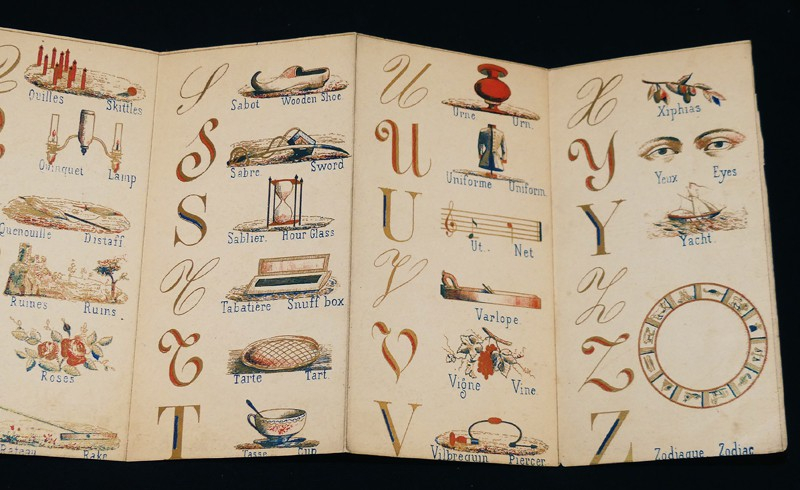 Quilles Skittles
Quinquet Lamp
Quenouille Distaff
Ruines Ruins.
Roses
Rateau Rake
S
Sabot Wooden Shoe.
S
Sabre. Sword
S
Sablier. Hour Glass
T
Tabatière Snuff box
T
Tarte Tart.
T
Tasse Cup
U
Urne Urn.
U
Uniforme Uniform
U
Ut.. Net
V
Varlope.
V
Vigne Vine.
V
Vilbrequin Piercer
X
Xiphias
Y
Yeux Eyes
Y
Yacht.
Z
Z
Z
Zodiaque Zodiac